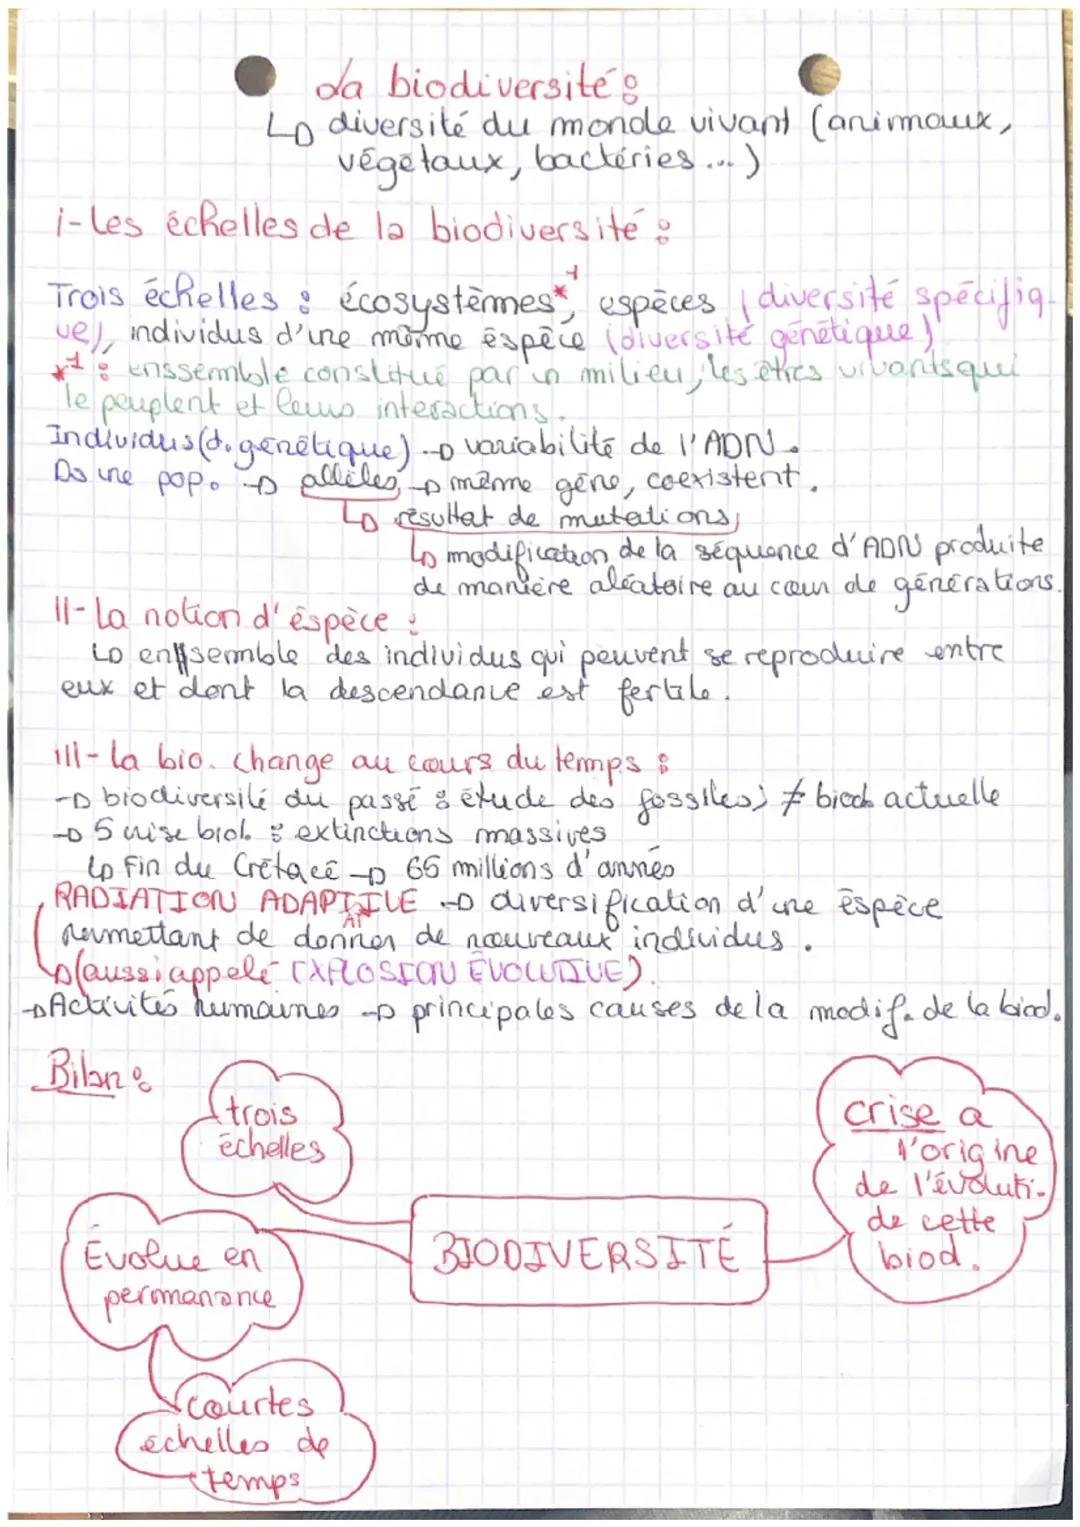 La biodiversité :
↳ diversité du monde vivant (animaux,
végétaux, bactéries ...)
I- Les échelles de la biodiversité :
Trois échelles : écosystèmes*1, espèces (diversité spécifiq-
ue), individus d'une même espèce (diversité génétique)
*1 : enssemble constitué par un milieu, les êtres vivants qui
le peuplent et leurs interactions.
Individus (d. génétique) → variabilité de l'ADN.
Ds une pop. → allèles → même gène, coexistent.
↳ résultat de mutations,
↳ modification de la séquence d'ADN produite
de manière aléatoire au cœur de générations.
II- La notion d'éspèce :
↳ enssemble des individus qui peuvent se reproduire entre
eux et dont la descendance est fertile.
III- La bio. change au cours du temps :
→ biodiversité du passé : étude des fossiles ; ≠ biod. actuelle
→ 5 crise biol. : extinctions massives
↳ Fin du Crétacé → 65 millions d'années
RADIATION ADAPTATIVE → diversification d'une éspèce
permettant de donner de nouveaux individus.
↳ (aussi appelé EXPLOSION ÉVOLUTIVE).
→ Activités humaines → principales causes de la modif. de la biod.
Bilan :
trois
échelles
crise a
l'origine
de l'évoluti-
de cette
biod.
Évolue en
permanance
BIODIVERSITÉ
courtes
échelles de
temps